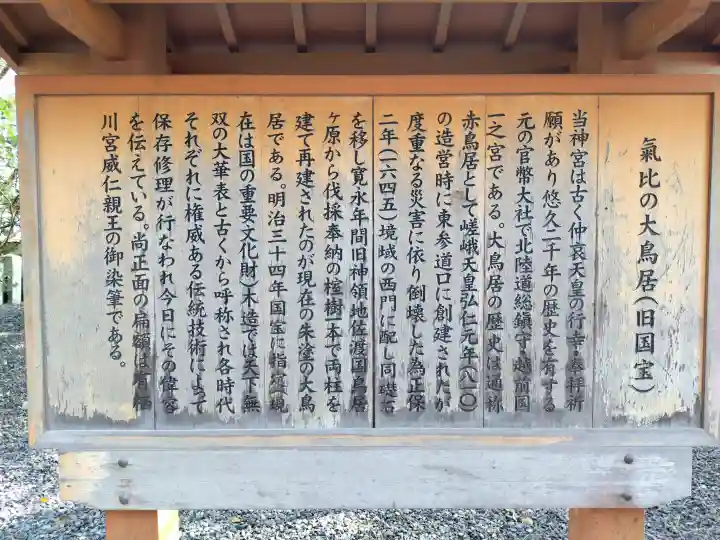 氣比の大鳥居(旧国宝)
当神宮は古く仲哀天皇の行幸・奉拝祈
願があり悠久二千年の歴史を有する
元の官幣大社で北陸道総鎮守・越前国
一之宮である。大鳥居の歴史は通称
赤鳥居として嵯峨天皇弘仁元年(八一〇)
の造営時に東参道口に創建されたが
度重なる災害に依り倒壊した為正保
二年(一六四五)境域の西門に配し同礎石
を移し寛永年間旧神領地佐渡国鳥居
ヶ原から伐採奉納の榁樹一本で両柱を
建て再建されたのが現在の朱塗の大鳥
居である。明治三十四年国宝に指定現
在は国の重要文化財)木造では天下無
双の大華表と古くから呼称され各時代
それぞれに権威ある伝統技術によって
保存修理が行なわれ今日にその偉容
を伝えている。尚正面の扁額は有栖
川宮威仁親王の御染筆である。